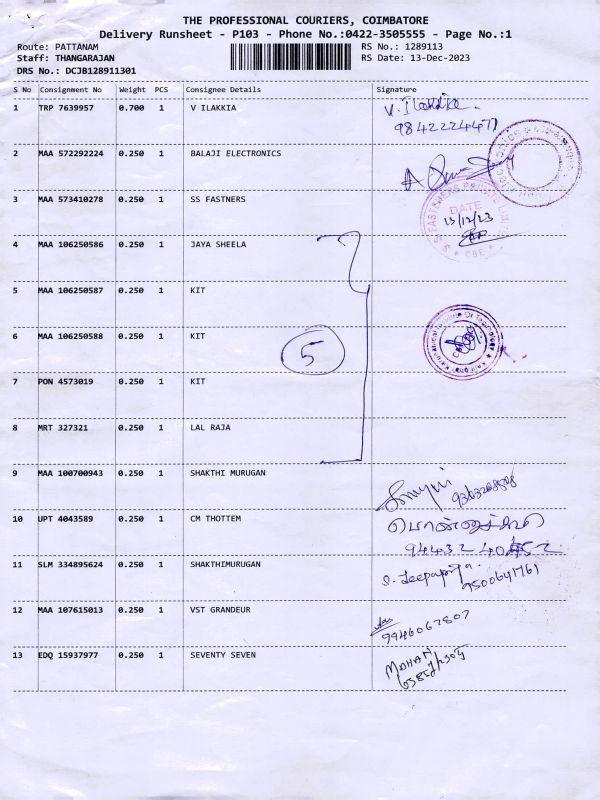 THE PROFESSIONAL COURIERS, COIMBATORE
Delivery Runsheet - P103 - Phone No.:0422-3505555 - Page No.:1
Route: PATTANAM
RS No.: 1289113
Staff: THANGARAJAN
RS Date: 13-Dec-2023
DRS No.: DCJB128911301
S No Consignment No Weight PCS Consignee Details Signature
1 TRP 7639957 0.700 1 V ILAKKIA V. Ilakkia.
9842224477
2 MAA 572292224 0.250 1 BALAJI ELECTRONICS
3 MAA 573410278 0.250 1 SS FASTNERS
DATE
13/12/23
CBE
4 MAA 106250586 0.250 1 JAYA SHEELA
5 MAA 106250587 0.250 1 KIT
6 MAA 106250588 0.250 1 KIT
5
7 PON 4573019 0.250 1 KIT
8 MRT 327321 0.250 1 LAL RAJA
9 MAA 100700943 0.250 1 SHAKTHI MURUGAN
10 UPT 4043589 0.250 1 CM THOTTEM
11 SLM 334895624 0.250 1 SHAKTHIMURUGAN
9500641761
12 MAA 107615013 0.250 1 VST GRANDEUR
9946067807
13 EDQ 15937977 0.250 1 SEVENTY SEVEN MOHAN